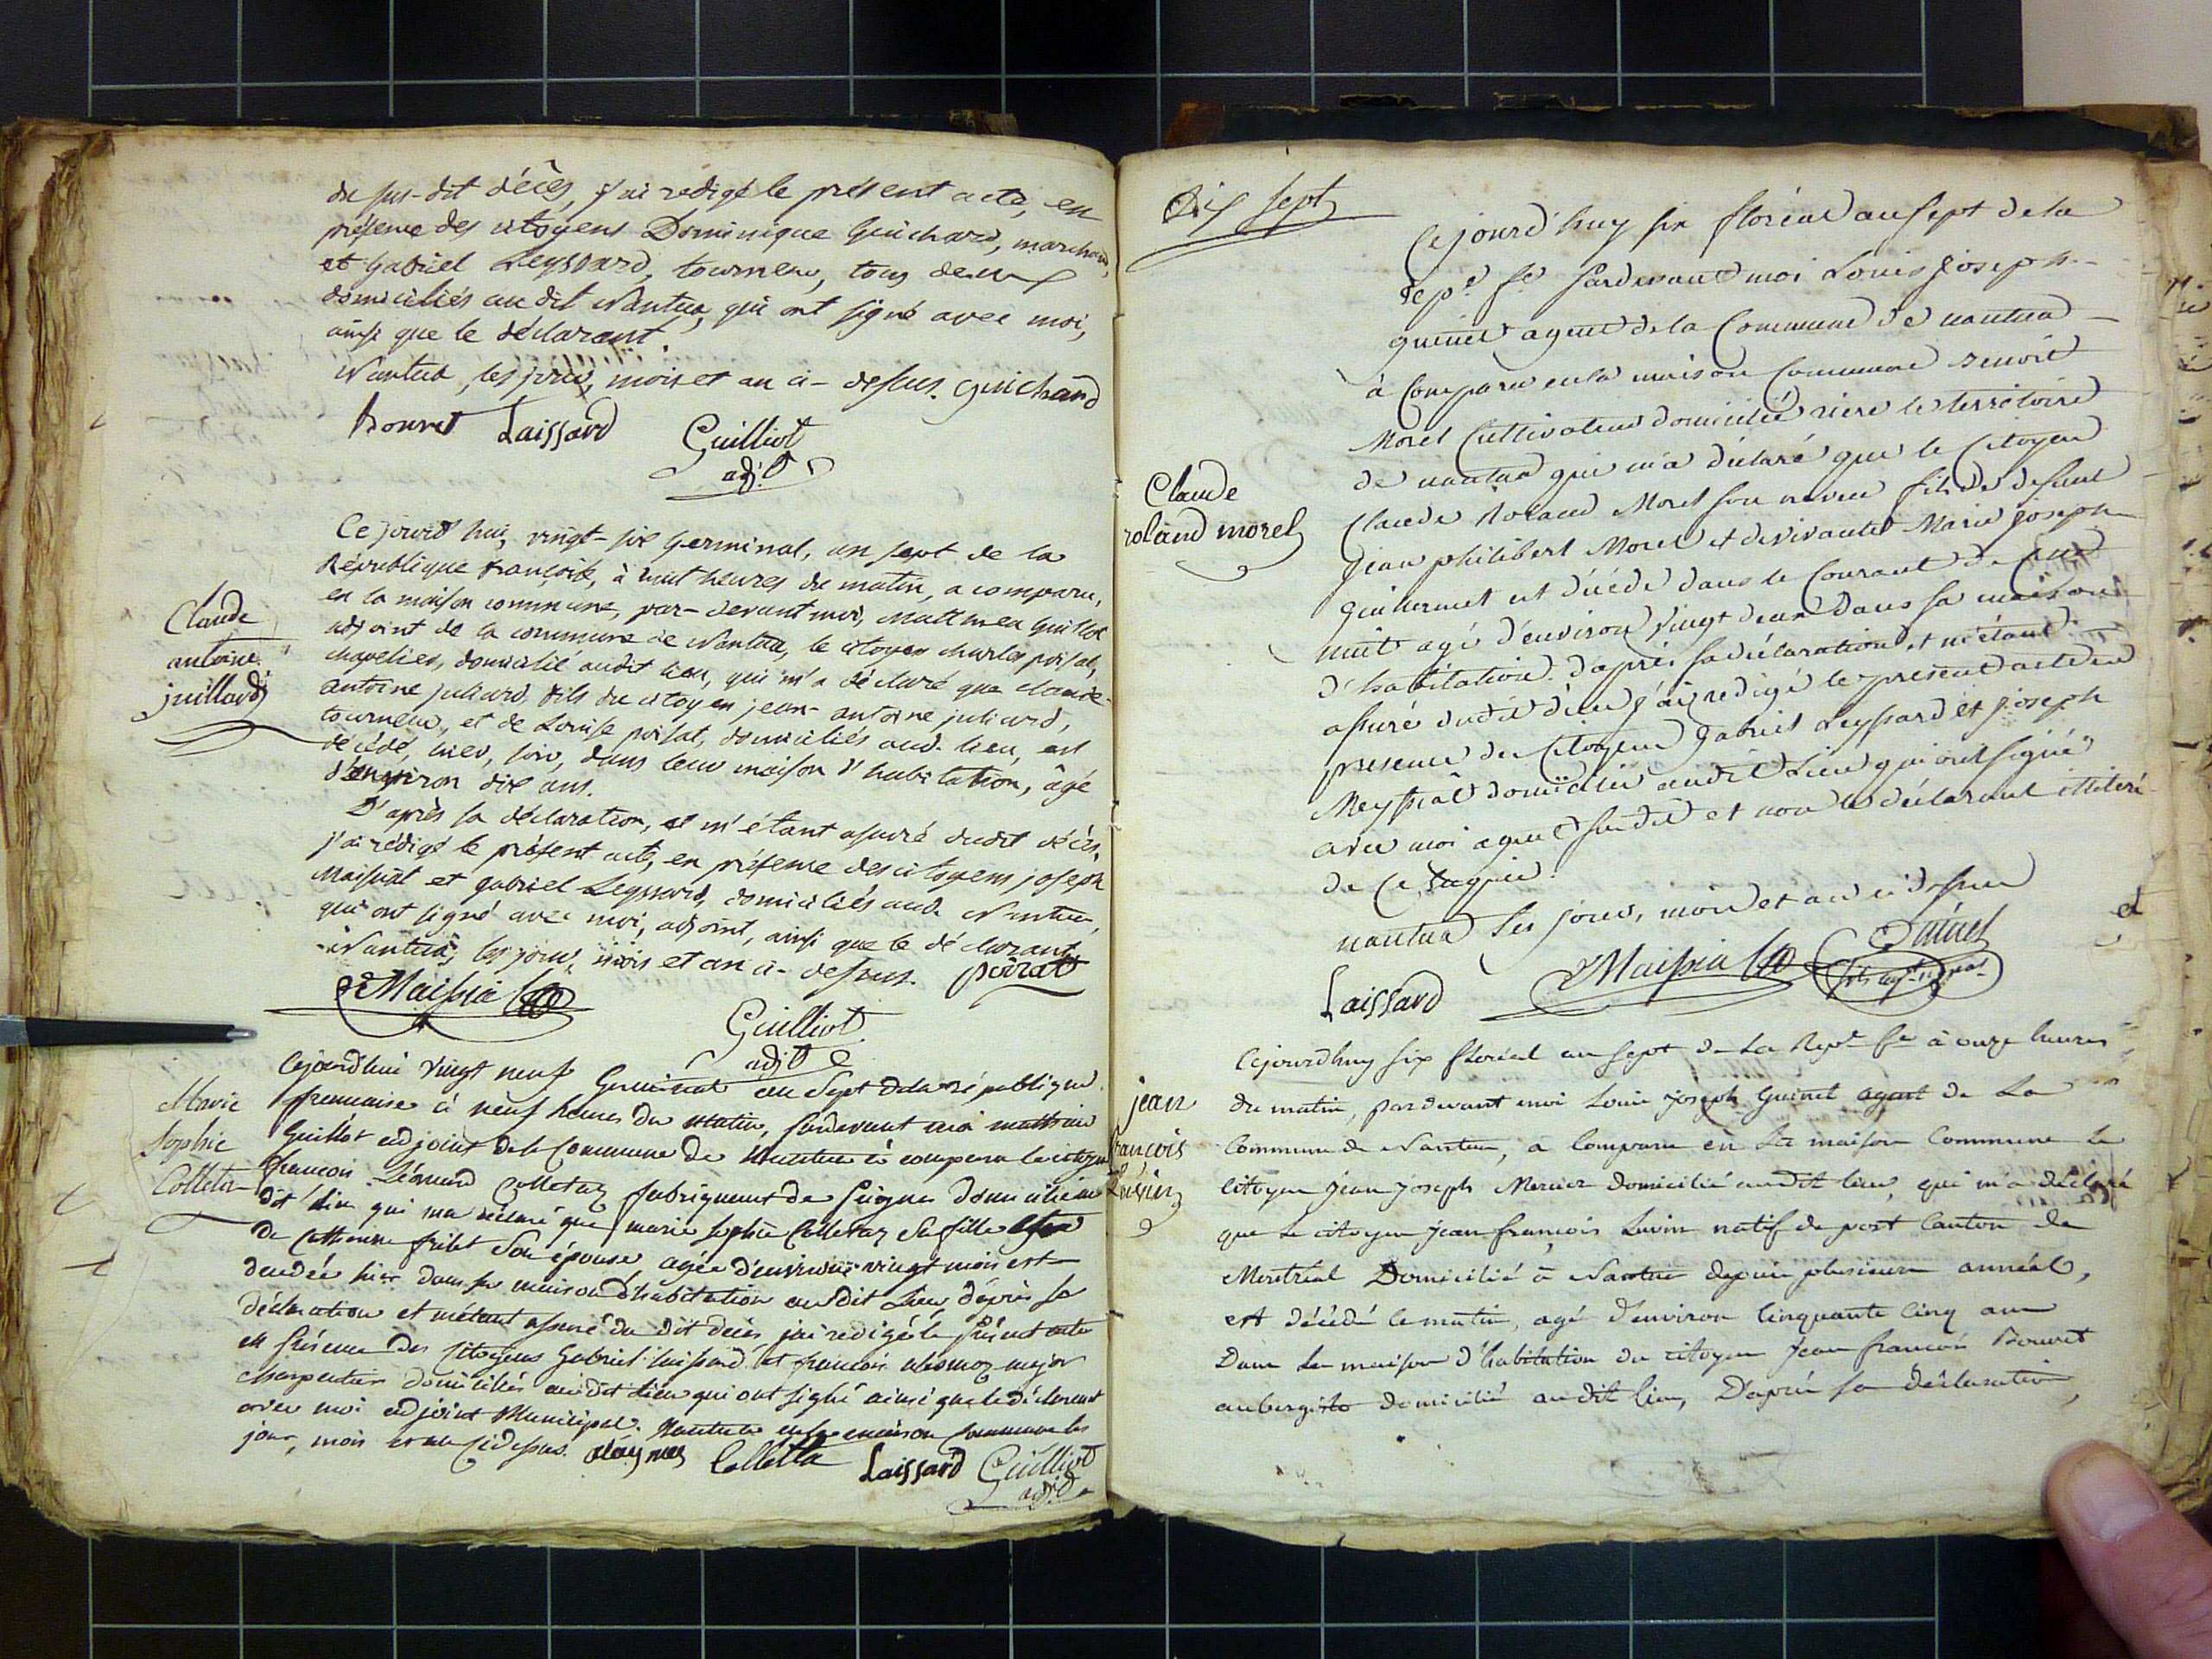 du sus-dit décès, j'ai redigé le présent acte, en
présence des citoyens Dominique Guichard, marchand,
et Gabriel Leyssard, tourneur, tous deux
domiciliés au dit Nantua, qui ont signé avec moi,
ainsi que le déclarant.
Nantua, les jour, mois et an ci-dessus. Guichard
Bouvet Laissard Guilliot
adj.t
Claude
antoine
juillard
Ce jourd'hui, vingt-six Germinal, an sept de la
République françoise, à huit heures du matin, a comparu,
en la maison commune, par-devant moi, Matthieu Guillot
adjoint de la commune de Nantua, le citoyen charles poisat,
chapelier, domicilié audit lieu, qui m'a déclaré que claude-
antoine juliard, fils du citoyen jean-antoine juliard,
tourneur, et de Louise poisat, domiciliés aud. lieu, est
décédé, hier, soir, dans leur maison d'habitation, âgé
d'environ dix ans.
D'après sa déclaration, et m'étant assuré dudit décès,
j'ai rédigé le présent acte, en présence des citoyens joseph
Maissiat et gabriel Leyssard, domiciliés aud. Nantua,
qui ont signé avec moi, adjoint, ainsi que le déclarant,
Nantua, les jour, mois et an ci-dessus.
Maissiat
Guilliot
adj.t
Marie
Sophie
Colleta
Cejourdhui vingt neuf Germinal an Sept de la république
francaise à neuf heures du matin, pardevant moi mathieu
Guillot adjoint de la Commune de Nantua à comparu le citoyen
francois Léonard Colletaz fabriquant de peignes domicilié au
dit lieu qui ma déclaré que marie sophie Colletaz sa fille et
de son épouse agée d'environ vingt mois est
décédée hier dans sa maison d'habitation audit Lieu d'après sa
déclaration et métant assuré du dit décès jai redigé le présent acte
en présence des Citoyens Gabriel laissard et francois major
charpentier domiciliés audit Lieu qui ont signé ainsi que le déclarant
avec moi adjoint Municipal. Nantua en la maison commune les
jour, mois et an cidessus. Colletta Laissard Guilliot
adj.t
Dix sept
Claude
roland morel
Cejourd'huy six floréal an sept de la
rep.e f.e pardevant moi Louis joseph
guinet agent de la Commune de nantua
à Comparu en la maison Commune benoit
Morel Cultivateur domicilié riere le territoire
de nantua qui m'a déclaré que le Citoyen
Claude Roland Morel son neveu fils de defunt
Jean philibert Morel et de vivante Marie joseph
guillermet est décédé dans le Courant de cette
nuit agé d'environ vingt deux dans sa maison
d'habitation. d'après sa déclaration et m'étant
assuré dudit décès j'ai redigé le present acte en
presence des Citoyens gabriel Leyssard et joseph
Meyssiat domicilié audit Lieu qui ont signé
avec moi agent susdit et non le déclarant illiteré
de ce enquis.
nantua les jour, mois et an ci dessus
Laissard Maissiat Guinet
jean
francois
Luvin
Cejourdhuy six floréal an sept de la Rep.e f.e à onze heures
du matin, par devant moi Louis joseph Guinet agent de La
Commune de Nantua, a Comparu en La maison Commune Le
Citoyen jean joseph Mercier domicilié audit lieu, qui m'a déclaré
que Le citoyen jean françois Luvin natif de port Canton de
Montréal Domicilié à Nantua depuis plusieurs années,
est décédé ce matin, agé d'environ Cinquante Cinq ans
Dans La maison d'habitation du citoyen jean françois Bouvet
aubergiste domicilié audit lieu, D'après sa déclaration,